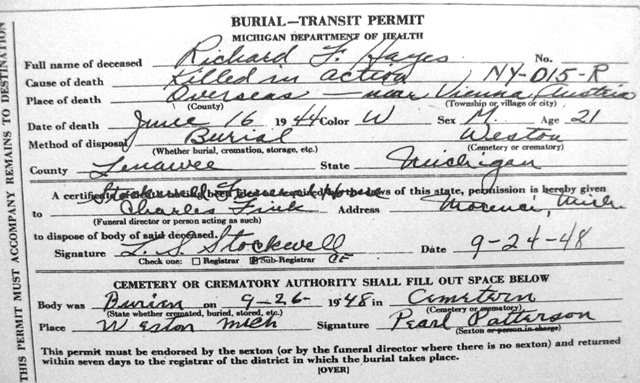 BURIAL—TRANSIT PERMIT
MICHIGAN DEPARTMENT OF HEALTH
Full name of deceased Richard F. Hayes No.
Cause of death Killed in action NY-D15-R
Place of death Overseas — near Vienna Austria
(County) (Township or village or city)
Date of death June 16 1944 Color W Sex M. Age 21
Method of disposal Burial Weston
(Whether burial, cremation, storage, etc.) (Cemetery or crematory)
County Lenawee State Michigan
A certificate of death having been filed as required by the laws of this state, permission is hereby given
to Charles Fink Address Morenci, Mich
(Funeral director or person acting as such)
to dispose of body of said deceased.
Signature L. S. Stockwell Date 9-24-48
Check one: Registrar Sub-Registrar
CEMETERY OR CREMATORY AUTHORITY SHALL FILL OUT SPACE BELOW
Body was Buried on 9-26- 1948 in Cemetery
(State whether cremated, buried, stored, etc.) (Cemetery or crematory)
Place Weston Mich Signature Pearl Patterson
(Sexton or person in charge)
This permit must be endorsed by the sexton (or by the funeral director where there is no sexton) and returned
within seven days to the registrar of the district in which the burial takes place.
[OVER]
THIS PERMIT MUST ACCOMPANY REMAINS TO DESTINATION